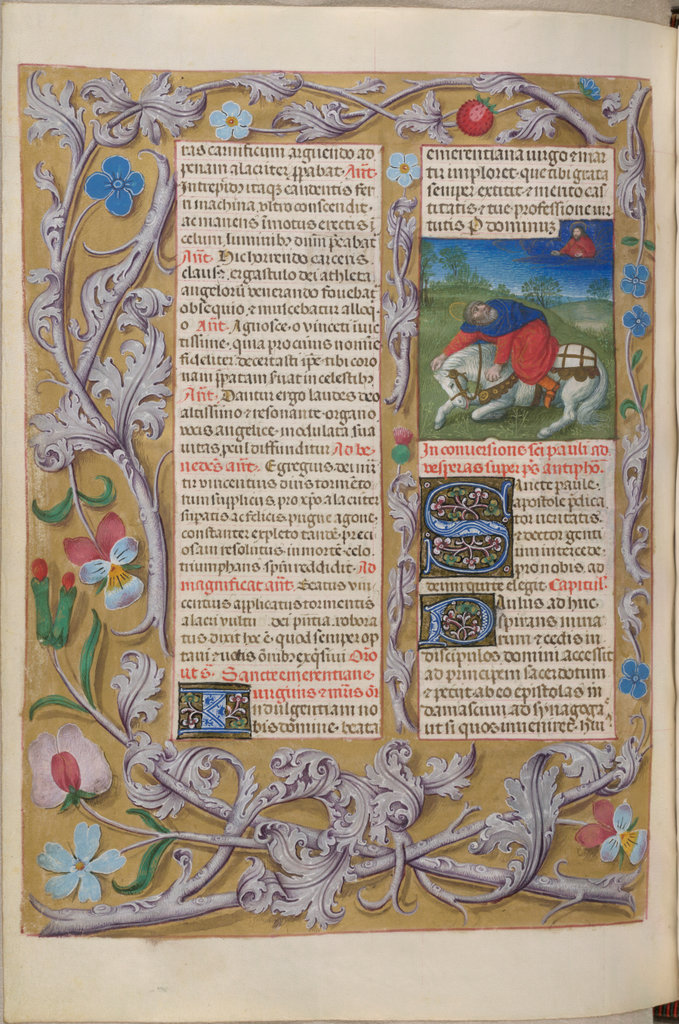 ras carnificum arguendo ad
penam alacriter ppabat. Añt.
Intrepido itaq; candentis fer
ri machina vltro conscendit.
ac manens imotus erectis i
celum luminibꝰ dñm pcabat
Añt. Hic horrendo carceris
clausꝰ ergastulo dei athleta
angelorū venerando fouebat
obsequio, et mulcebatur alloqi
o Añt. Agnosce o vincenti inuic
tissime, quia pro cuius nomine
fideliter decertasti ipe tibi coro
nam ppatam suat in celestibꝰ
Añt. Dantur ergo laudes deo
altissimo et resonante organo
vocis angelice, modulata sua
uitas pcul diffunditur. Ad be
nedcs añt. Egregius dei mr̄
tir vincentius diris tormēto
rum suppliciis, pro xpo alacriter
supatis ac felicis pugne agone,
constanter expleto tande preci
osam resolutus in morte celo
triumphans spm reddidit. Ad
magnificat añt. Beatus vin
centius applicatus tormentis
alacri vultu dei p̄ntia robora
tus dixit hoc ē quod semper op
taui et votis omibꝫ exqsiui Oro
ut s̄. Sancte emerentiane
virginis et mr̄is or̄
Indulgentiam no
bis domine, beata
emerentiana uirgo et mar
tir imploret, que tibi grata
semper extitit, et merito cas
titatis, et tue professione uir
tutis P dominuꝫ
In conuersione sc̄i pauli ad
vesperas super ps̄ antipho.
Sancte paule
apostole pdica
tor ueritatis
et doctor genti
um intercede
pro nobis ad
deum qui te elegit Capitul.
Saulus ad huc
spirans mina
rum et cedis in
discipulos domini accessit
ad principem sacerdotum
et petiit ab eo epistolas in
damascum ad synagogas
ut si quos inueniret, hui